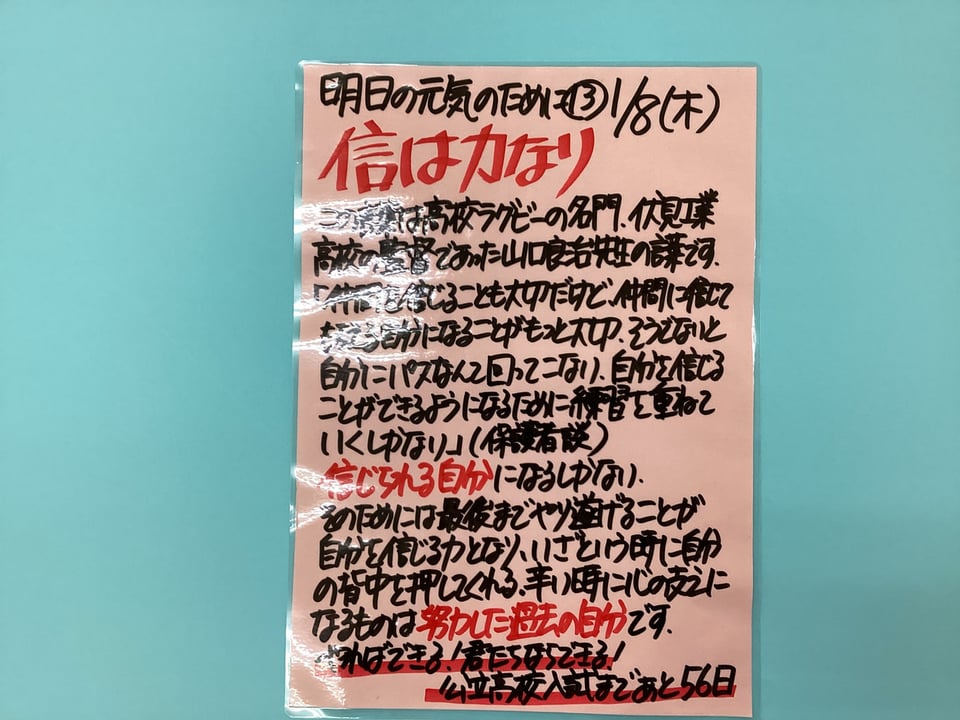 明日の元気のために⑬ 1/8(木)
信は力なり
この言葉は高校ラグビーの名門、伏見工業
高校の監督であった山口良治先生の言葉です。
「仲間を信じることも大切だけど、仲間に信じて
もらえる自分になることがもっと大切。そうでないと
自分にパスなんて回ってこない、自分を信じる
ことができるようになるために練習を重ねて
いくしかない」(保護者談)
信じられる自分になるしかない、
そのためには最後までやり遂げることが
自分を信じる力となり、いざという時に自分
の背中を押してくれる、辛い時に心の支えに
なるものは努力した過去の自分です。
やればできる!君たちならできる!
公立高校入試まであと56日